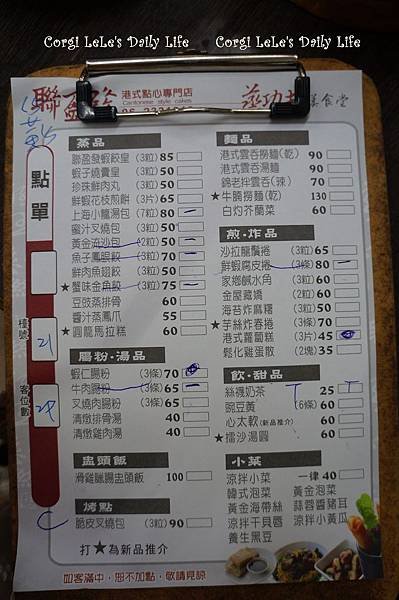 Corgi LeLe's Daily Life Corgi LeLe's Daily Life
聯盈發 港式點心專門店
Cantonese style cakes
美食堂
點單
檯號
21
客位數
蒸品
聯盈發蝦餃皇 (3粒) 85
蝦子燒賣皇 (3粒) 50
珍珠鮮肉丸 (3粒) 50
鮮蝦花枝煎餅 (3片) 65
上海小籠湯包 (7粒) 80
蜜汁叉燒包 (3粒) 50
黃金流沙包 (2粒) 50
魚子鳳眼餃 (3粒) 70
鮮肉魚翅餃 (3粒) 70
★蟹味金角餃 (3粒) 75
豆豉蒸排骨 60
醬汁蒸鳳爪 55
★圓籠馬拉糕 60
腸粉·湯品
蝦仁腸粉 (3條) 70
牛肉腸粉 (3條) 65
叉燒肉腸粉 (3條) 65
清燉排骨湯 40
清燉雞肉湯 40
盅頭飯
滑雞臘腸盅頭飯 100
烤點
脆皮叉燒包 (3粒) 90
打★為新品推介
麵品
港式雲吞撈麵(乾) 90
港式雲吞湯麵 90
錦老拌雲吞(辣) 70
★牛腩撈麵(乾) 130
白灼芥蘭菜 60
煎·炸品
沙拉龍鬚捲 (3粒) 65
鮮蝦腐皮捲 (3條) 80
家鄉鹹水角 (3粒) 60
金屋藏嬌 (2粒) 60
海苔炸麻糬 (3粒) 50
★芋絲炸春捲 (3條) 70
港式蘿蔔糕 (3片) 45
鬆化雞蛋散 (2塊) 35
飲·甜品
絲襪奶茶 T 25 T
豌豆黃 (6條) 60
心太軟(新品推介) 60
★擂沙湯圓 60
小菜
涼拌小菜 一律 40
韓式泡菜 黃金泡菜
黃金海帶絲 蒜蓉醬豬耳
涼拌干貝唇 涼拌小黃瓜
養生黑豆
如客滿中，恕不加點，敬請見諒